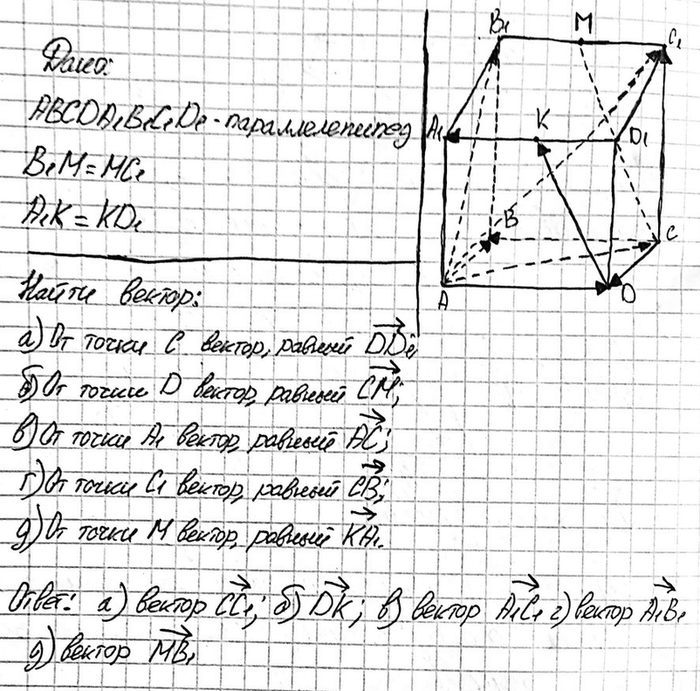 Дано:
ABCDA₁B₁C₁D₁ - параллелепипед
B₁M = MC₁
A₁K = KD₁
B₁
M
C₁
A₁
K
D₁
B
C
A
D
Найти вектор:
а) От точки C вектор, равный DD₁;
б) От точки D вектор, равный CM;
в) От точки A₁ вектор, равный AC;
г) От точки C₁ вектор, равный CB;
д) От точки M вектор, равный KA₁.
Ответ: а) вектор CC₁; б) DK; в) вектор A₁C₁ г) вектор A₁B₁
д) вектор MB₁